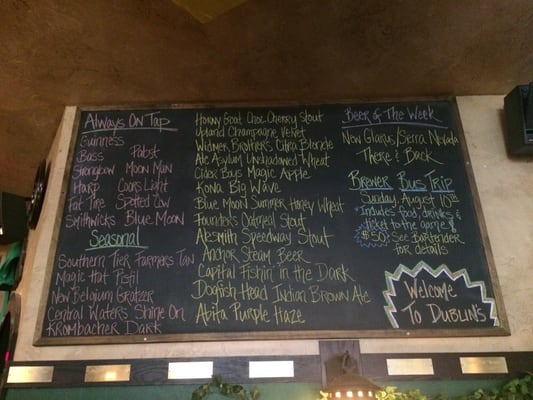 Always On Tap
Guinness
Bass Pabst
Strongbow Moon Man
Harp Coors Light
Fat Tire Spotted Cow
Smithwicks Blue Moon
Seasonal
Southern Tier Farmers Tan
Magic Hat Pistil
New Belgium Gratzer
Central Waters Shine On
Krombacher Dark
Horny Goat Choc Cherry Stout
Upland Champagne Velvet
Widmer Brothers Citra Blonde
Ale Asylum Unshadowed Wheat
Cider Boys Magic Apple
Kona Big Wave
Blue Moon Summer Honey Wheat
Founders Oatmeal Stout
AleSmith Speedway Stout
Anchor Steam Beer
Capital Fishin' in the Dark
Dogfish Head Indian Brown Ale
Abita Purple Haze
Beer of The Week
New Glarus/Sierra Nevada
There & Back
Brewer Bus Trip
Sunday, August 10th
*Includes food, drinks &
ticket to the game!
$50! See Bartender
for details
Welcome
To Dublin's